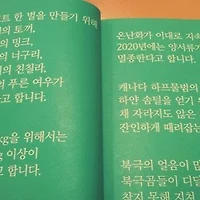 트 한 벌을 만들기 위해
의 토끼,
의 밍크,
의 너구리,
리의 친칠라,
의 푸른 여우가
다고 합니다.
kg을 위해서는
이상이
고 합니다.
온난화가 이대로 지속
2020년에는 양서류가
멸종한다고 합니다.
캐나다 하프물범의
하얀 솜털을 얻기 위
채 자라지도 않은
잔인하게 때려잡는
북극의 얼음이
북극곰들이 디딜
찾지 못해 지쳐